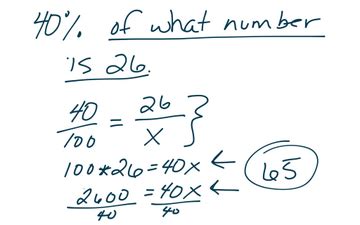 40% of what number
is 26.
40/100 = 26/x }
100*26=40x ← 65
2600/40 = 40x/40 ←